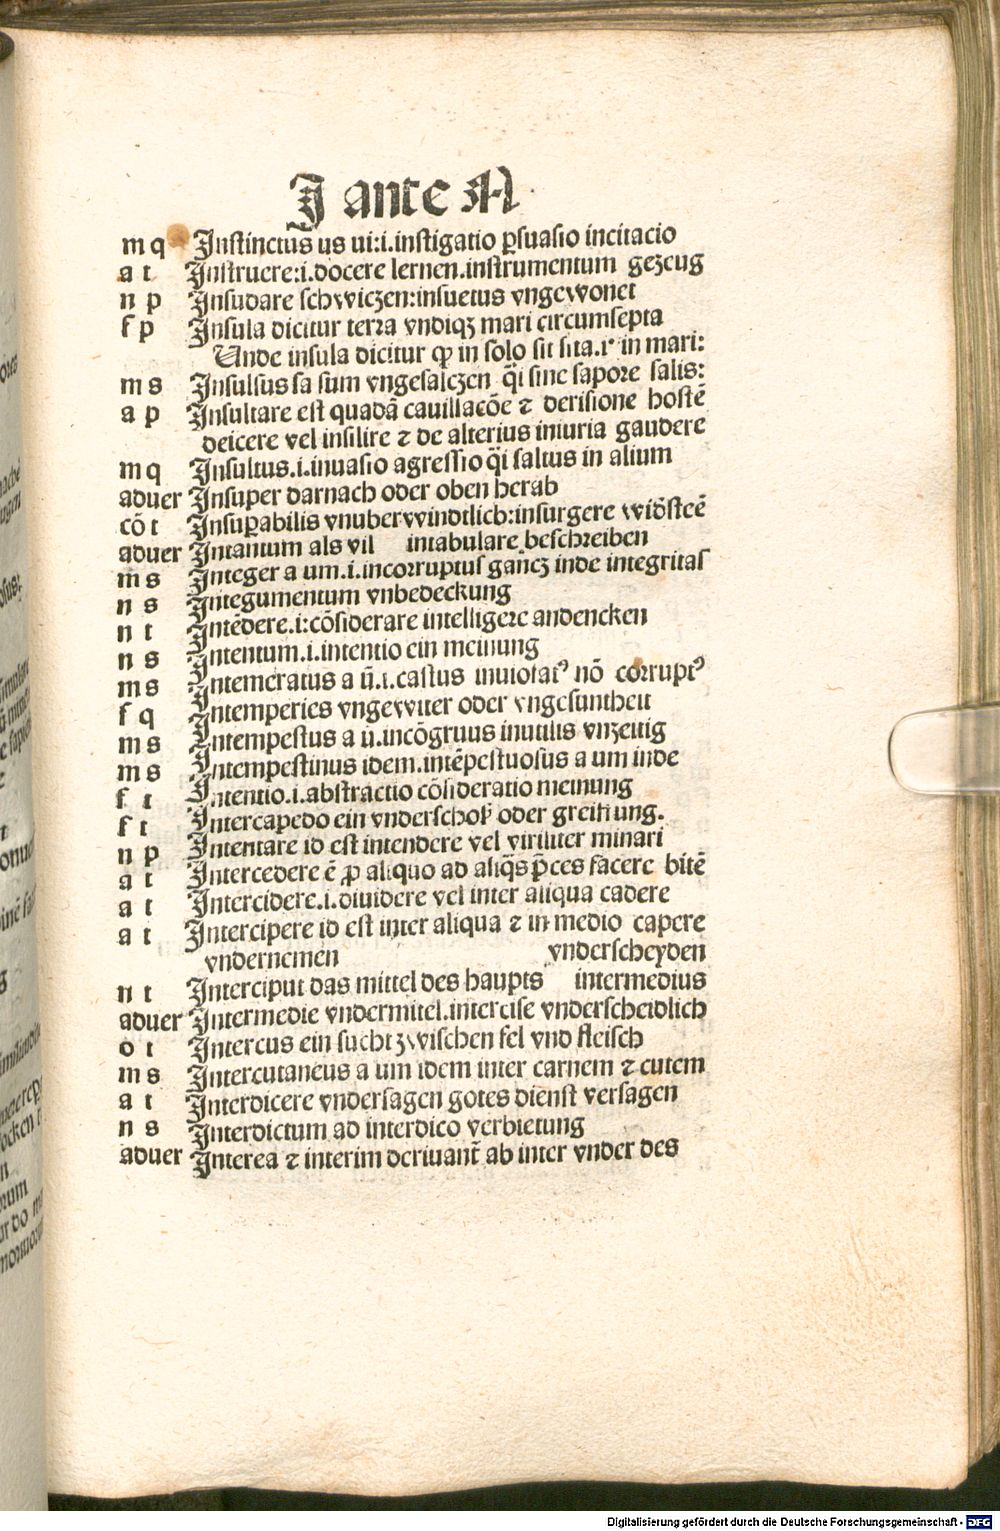 J ante N
m q Instinctus us ui:i.instigatio ꝑsuasio incitacio
a t Instruere:i.docere lernen.instrumentum gezeug
n p Insudare schwiczen:insuetus vngewonet
f p Insula dicitur terra vndiqꝫ mari circumsepta
Unde insula dicitur ꝙ in solo sit sita.i' in mari:
m s Insulsus sa sum vngesalczen q̃i sine sapore salis:
a p Insultare est quadã cauillacõe ⁊ derisione hostẽ
deicere vel insilire ⁊ de alterius iniuria gaudere
m q Insultus.i.inuasio agressio q̃i saltus in alium
aduer Insuper darnach oder oben herab
cõ t Insuꝑabilis vnuberwindtlich:insurgere widsteẽ
aduer Intantum als vil intabulare beschreiben
m s Integer a um.i.incorruptus gancz inde integritas
n s Integumentum vnbedeckung
n t Intẽdere.i:cõsiderare intelligere andencken
n s Intentum.i.intentio ein meinung
m s Intemeratus a ũ.i.castus inuiolatꝰ nõ corruptꝰ
f q Intemperies vngewiter oder vngesuntheit
m s Intempestus a ũ.incõgruus inutilis vnzeitig
m s Intempestinus idem.intẽpestuosus a um inde
f t Intentio.i.abstractio cõsideratio meinung
f t Intercapedo ein vnderschok oder greiffung.
n p Intentare id est intendere vel viriliter minari
a t Intercedere ẽ ꝓ aliquo ad aliq̃s p̃ces facere bitẽ
a t Intercidere.i.diuidere vel inter aliqua cadere
a t Intercipere id est inter aliqua ⁊ in medio capere
vndernemen vnderscheyden
n t Interciput das mittel des haupts intermedius
aduer Intermedie vndermitel.intercise vnderscheidlich
o t Intercus ein sucht zwischen fel vnd fleisch
m s Intercutaneus a um idem inter carnem ⁊ cutem
a t Interdicere vndersagen gotes dienst versagen
n s Interdictum ad interdico verbietung
aduer Interea ⁊ interim deriuant̃ ab inter vnder des
Digitalisierung gefördert durch die Deutsche Forschungsgemeinschaft - DFG